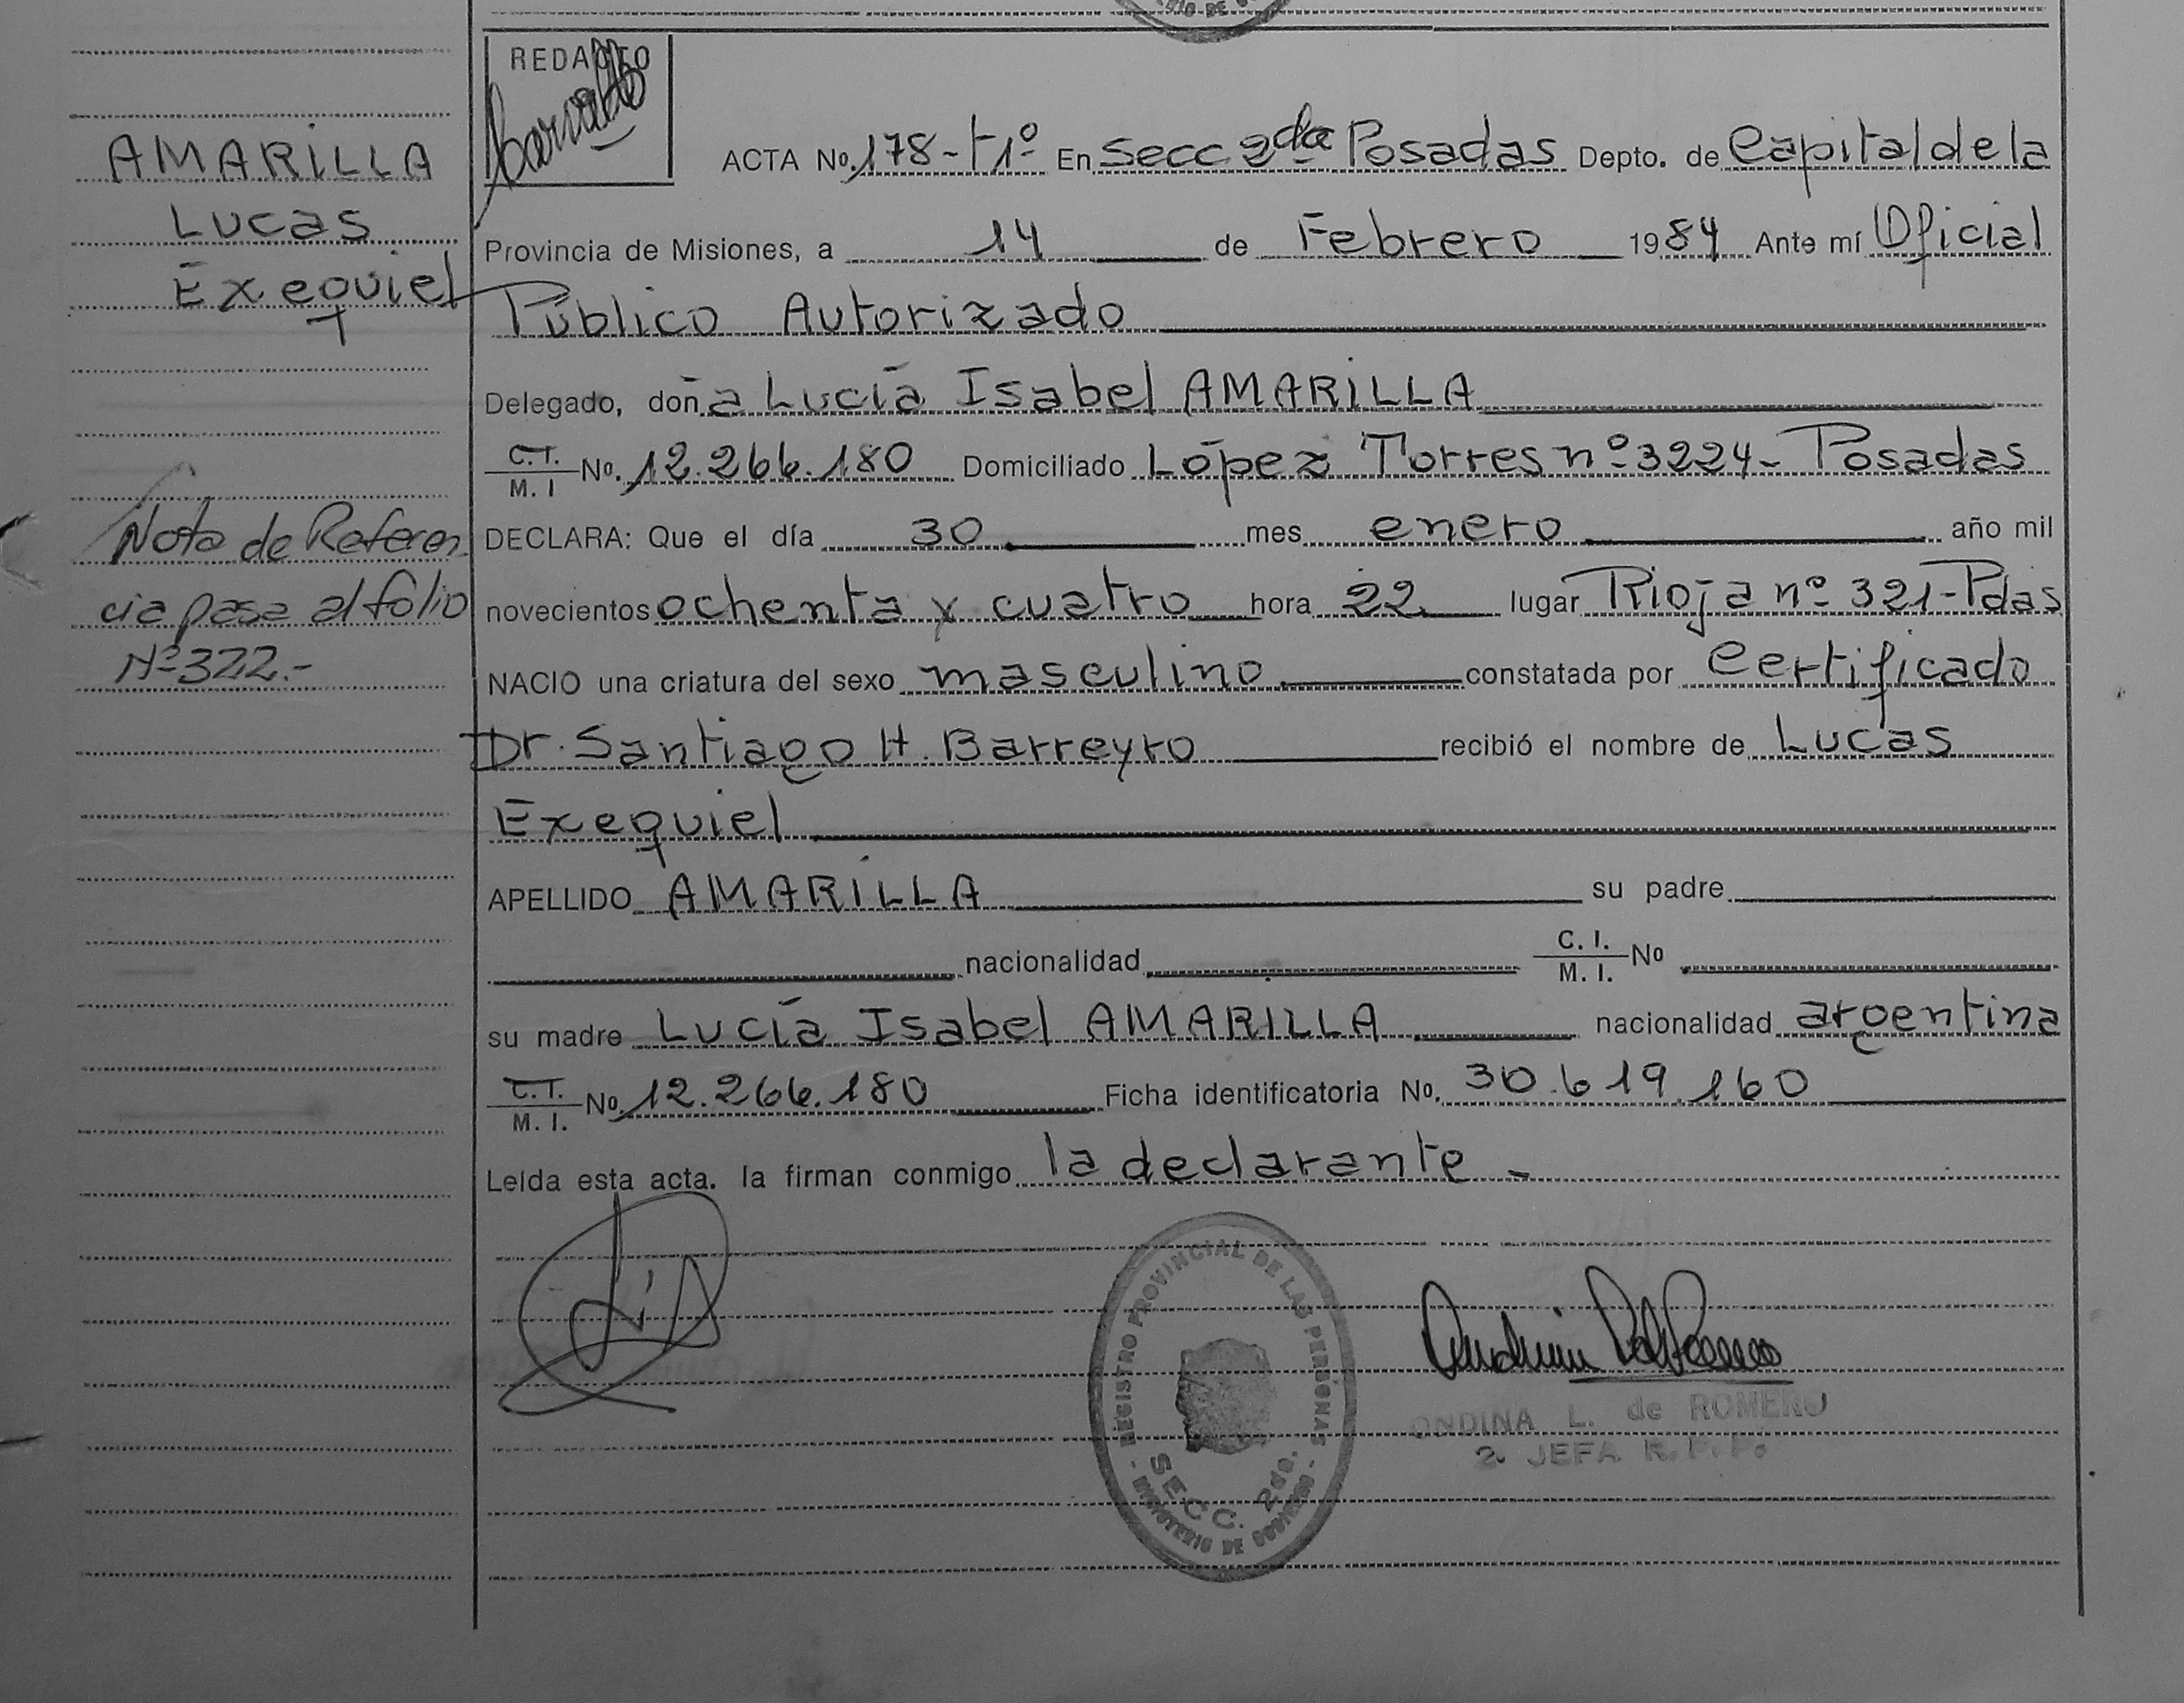 RIO DE
REDACTO
AMARILLA
Lucas
Exequiel
ACTA No. 178-t1º En Secc 2da Posadas Depto. de Capital de la
Provincia de Misiones, a 14 de Febrero 1984 Ante mí Oficial
Público Autorizado
Delegado, doña Lucía Isabel AMARILLA
C.I. M. I No. 12.266.180 Domiciliado López Torres nº 3224- Posadas
Nota de Referen
cia pasa al folio
Nº 322.-
DECLARA: Que el día 30 mes enero año mil
novecientos ochenta y cuatro hora 22 lugar Rioja nº 321-Pdas
NACIO una criatura del sexo masculino constatada por Certificado
Dr. Santiago H. Barreyro recibió el nombre de Lucas
Exequiel
APELLIDO AMARILLA su padre
nacionalidad C. I. M. I. No
su madre Lucía Isabel AMARILLA nacionalidad argentina
C.I. M. I. No. 12.266.180 Ficha identificatoria No. 30.619.160
Leída esta acta. la firman conmigo la declarante -
REGISTRO PROVINCIAL DE LAS PERSONAS
SECC. 2da.
- MINISTERIO DE GOBIERNO -
ONDINA L. de ROMERO
2. JEFA R. P. P.